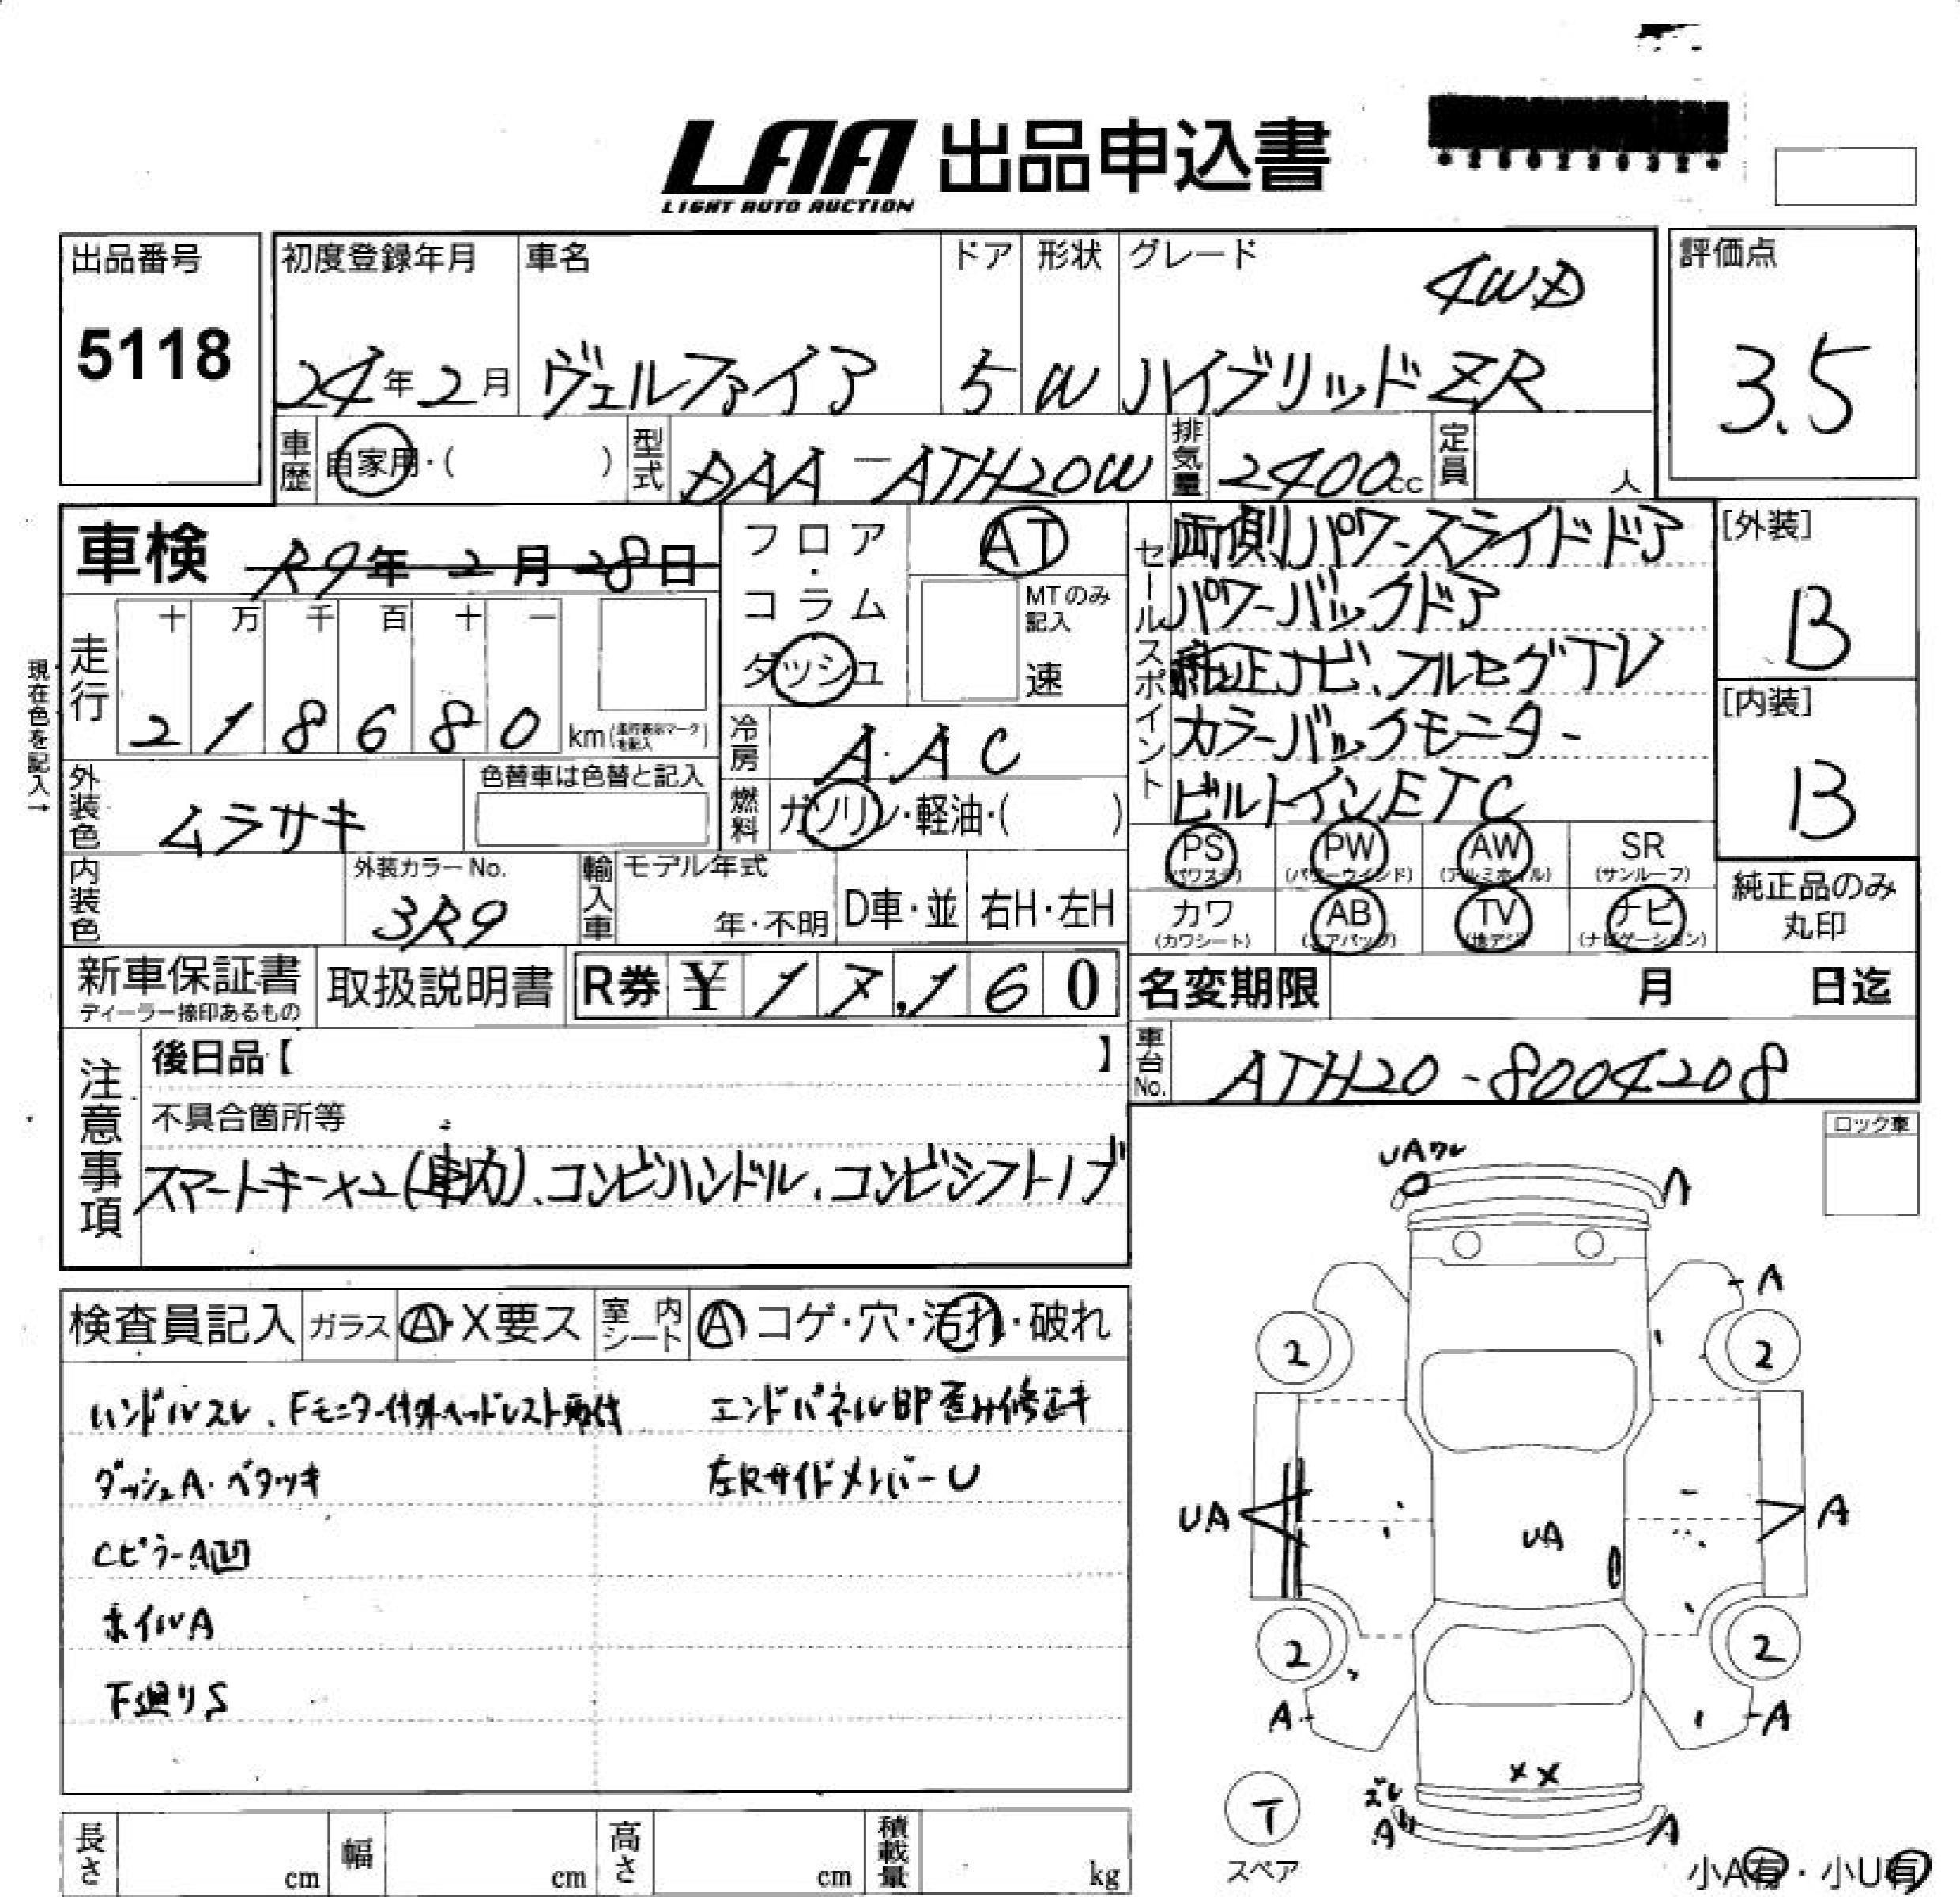 LAA 出品申込書
LIGHT AUTO AUCTION
出品番号
5118
初度登録年月
24年2月
車名
ヴェルファイア
ドア
5
形状
W
グレード
4WD
ハイブリッドZR
評価点
3.5
車歴
自家用・( )
型式
DAA-ATH20W
排気量
2400cc
定員
人
車検 R9年2月28日
走行
十 万 千 百 十 一
2 1 8 6 8 0 km
現在色を記入→
外装色
ムラサキ
色替車は色替と記入
内装色
外装カラーNo.
3R9
フロア・コラム
ダッシュ
AT
MTのみ記入
速
冷房
AAC
燃料
ガソリン・軽油・( )
輸入車
モデル年式
年・不明
D車・並
右H・左H
セールスポイント
両側パワースライドドア
パワーバックドア
純正ナビ、フルセグTV
カラーバックモニター
ビルトインETC
[外装]
B
[内装]
B
PS
(パワステ)
PW
(パワーウインド)
AW
(アルミホイル)
SR
(サンルーフ)
カワ
(カワシート)
AB
(エアバッグ)
TV
(地デジ)
ナビ
(ナビゲーション)
純正品のみ
丸印
新車保証書
ディーラー捺印あるもの
取扱説明書
R券 ¥17,160
名変期限 月 日迄
車台No.
ATH20-8004208
注意事項
後日品【 】
不具合箇所等
スマートキー×2(車内)、コンビハンドル、コンビシフトノブ
ロック車
検査員記入
ガラス
A・X要ス
室内シート
A コゲ・穴・汚れ・破れ
ハンドルスレ、Fモニター付外ヘッドレスト取付
ダッシュA・ベタツキ
CピラーA凹
ホイルA
下廻りS
エンドパネルBP歪み修正キ
左RサイドメンバーU
UAワレ
A
A
2
2
UA
UA
A
2
2
A
A
XX
ズレ
A
A
T
スペア
小A有・小U有
長さ cm
幅 cm
高さ cm
積載量 kg